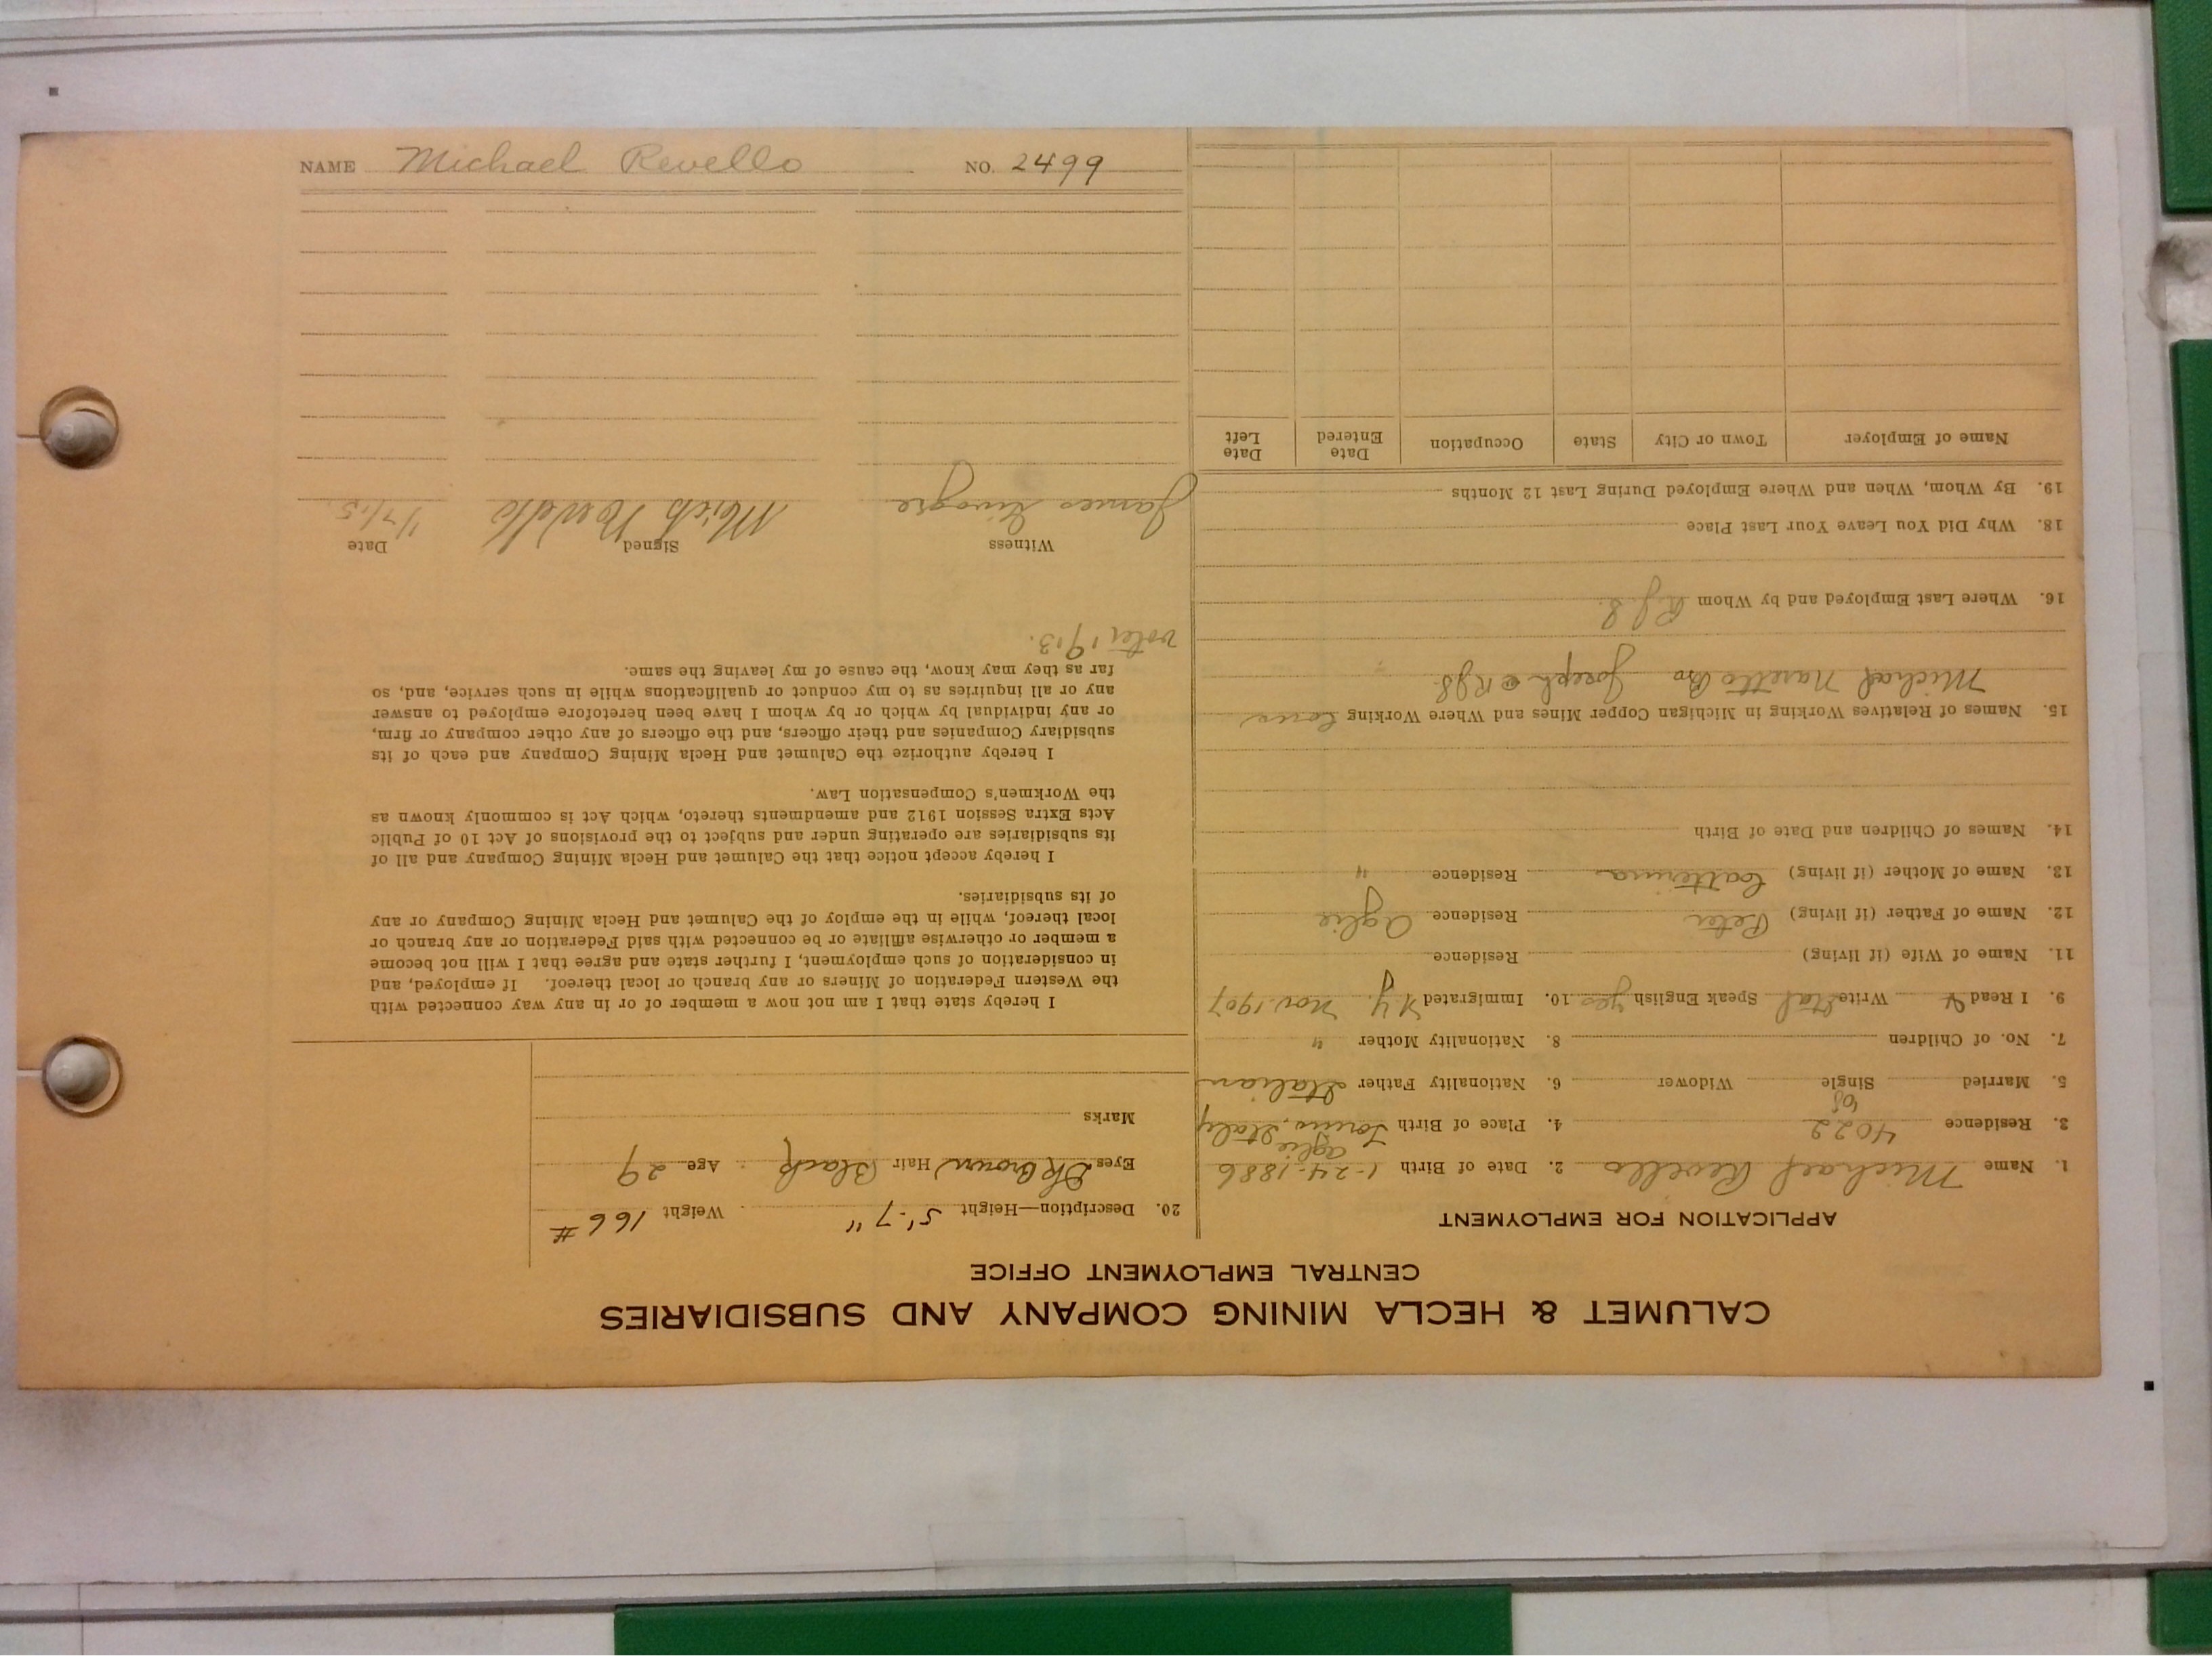 CALUMET & HECLA MINING COMPANY AND SUBSIDIARIES
CENTRAL EMPLOYMENT OFFICE
APPLICATION FOR EMPLOYMENT
1. Name Michael Revello 2. Date of Birth 1-24-1886
3. Residence 4022 4. Place of Birth Aglie Torino, Italy
5. Married Single Widower 6. Nationality Father Italian
7. No. of Children 8. Nationality Mother "
9. I Read & Write Ital Speak English yes 10. Immigrated N.Y. Nov. 1907
11. Name of Wife (if living) Residence
12. Name of Father (if living) Peter Residence Aglie
13. Name of Mother (if living) Catterina Residence "
14. Names of Children and Date of Birth
15. Names of Relatives Working in Michigan Copper Mines and Where Working
Michael Naretto Bro Joseph @ RJS.
16. Where Last Employed and by Whom RJS.
18. Why Did You Leave Your Last Place
19. By Whom, When and Where Employed During Last 12 Months
Name of Employer Town or City State Occupation Date Entered Date Left
20. Description—Height 5'-7" Weight 166 #
Eyes Dk Brown Hair Black Age 29
Marks
I hereby state that I am not now a member of or in any way connected with
the Western Federation of Miners or any branch or local thereof. If employed, and
in consideration of such employment, I further state and agree that I will not become
a member or otherwise affiliate or be connected with said Federation or any branch or
local thereof, while in the employ of the Calumet and Hecla Mining Company or any
of its subsidiaries.
I hereby accept notice that the Calumet and Hecla Mining Company and all of
its subsidiaries are operating under and subject to the provisions of Act 10 of Public
Acts Extra Session 1912 and amendments thereto, which Act is commonly known as
the Workmen's Compensation Law.
I hereby authorize the Calumet and Hecla Mining Company and each of its
subsidiary Companies and their officers, and the officers of any other company or firm,
or any individual by which or by whom I have been heretofore employed to answer
any or all inquiries as to my conduct or qualifications while in such service, and, so
far as they may know, the cause of my leaving the same.
1913.
Witness Signed Date
James Mich Revello 1/7/15.
NAME Michael Revello NO. 2499